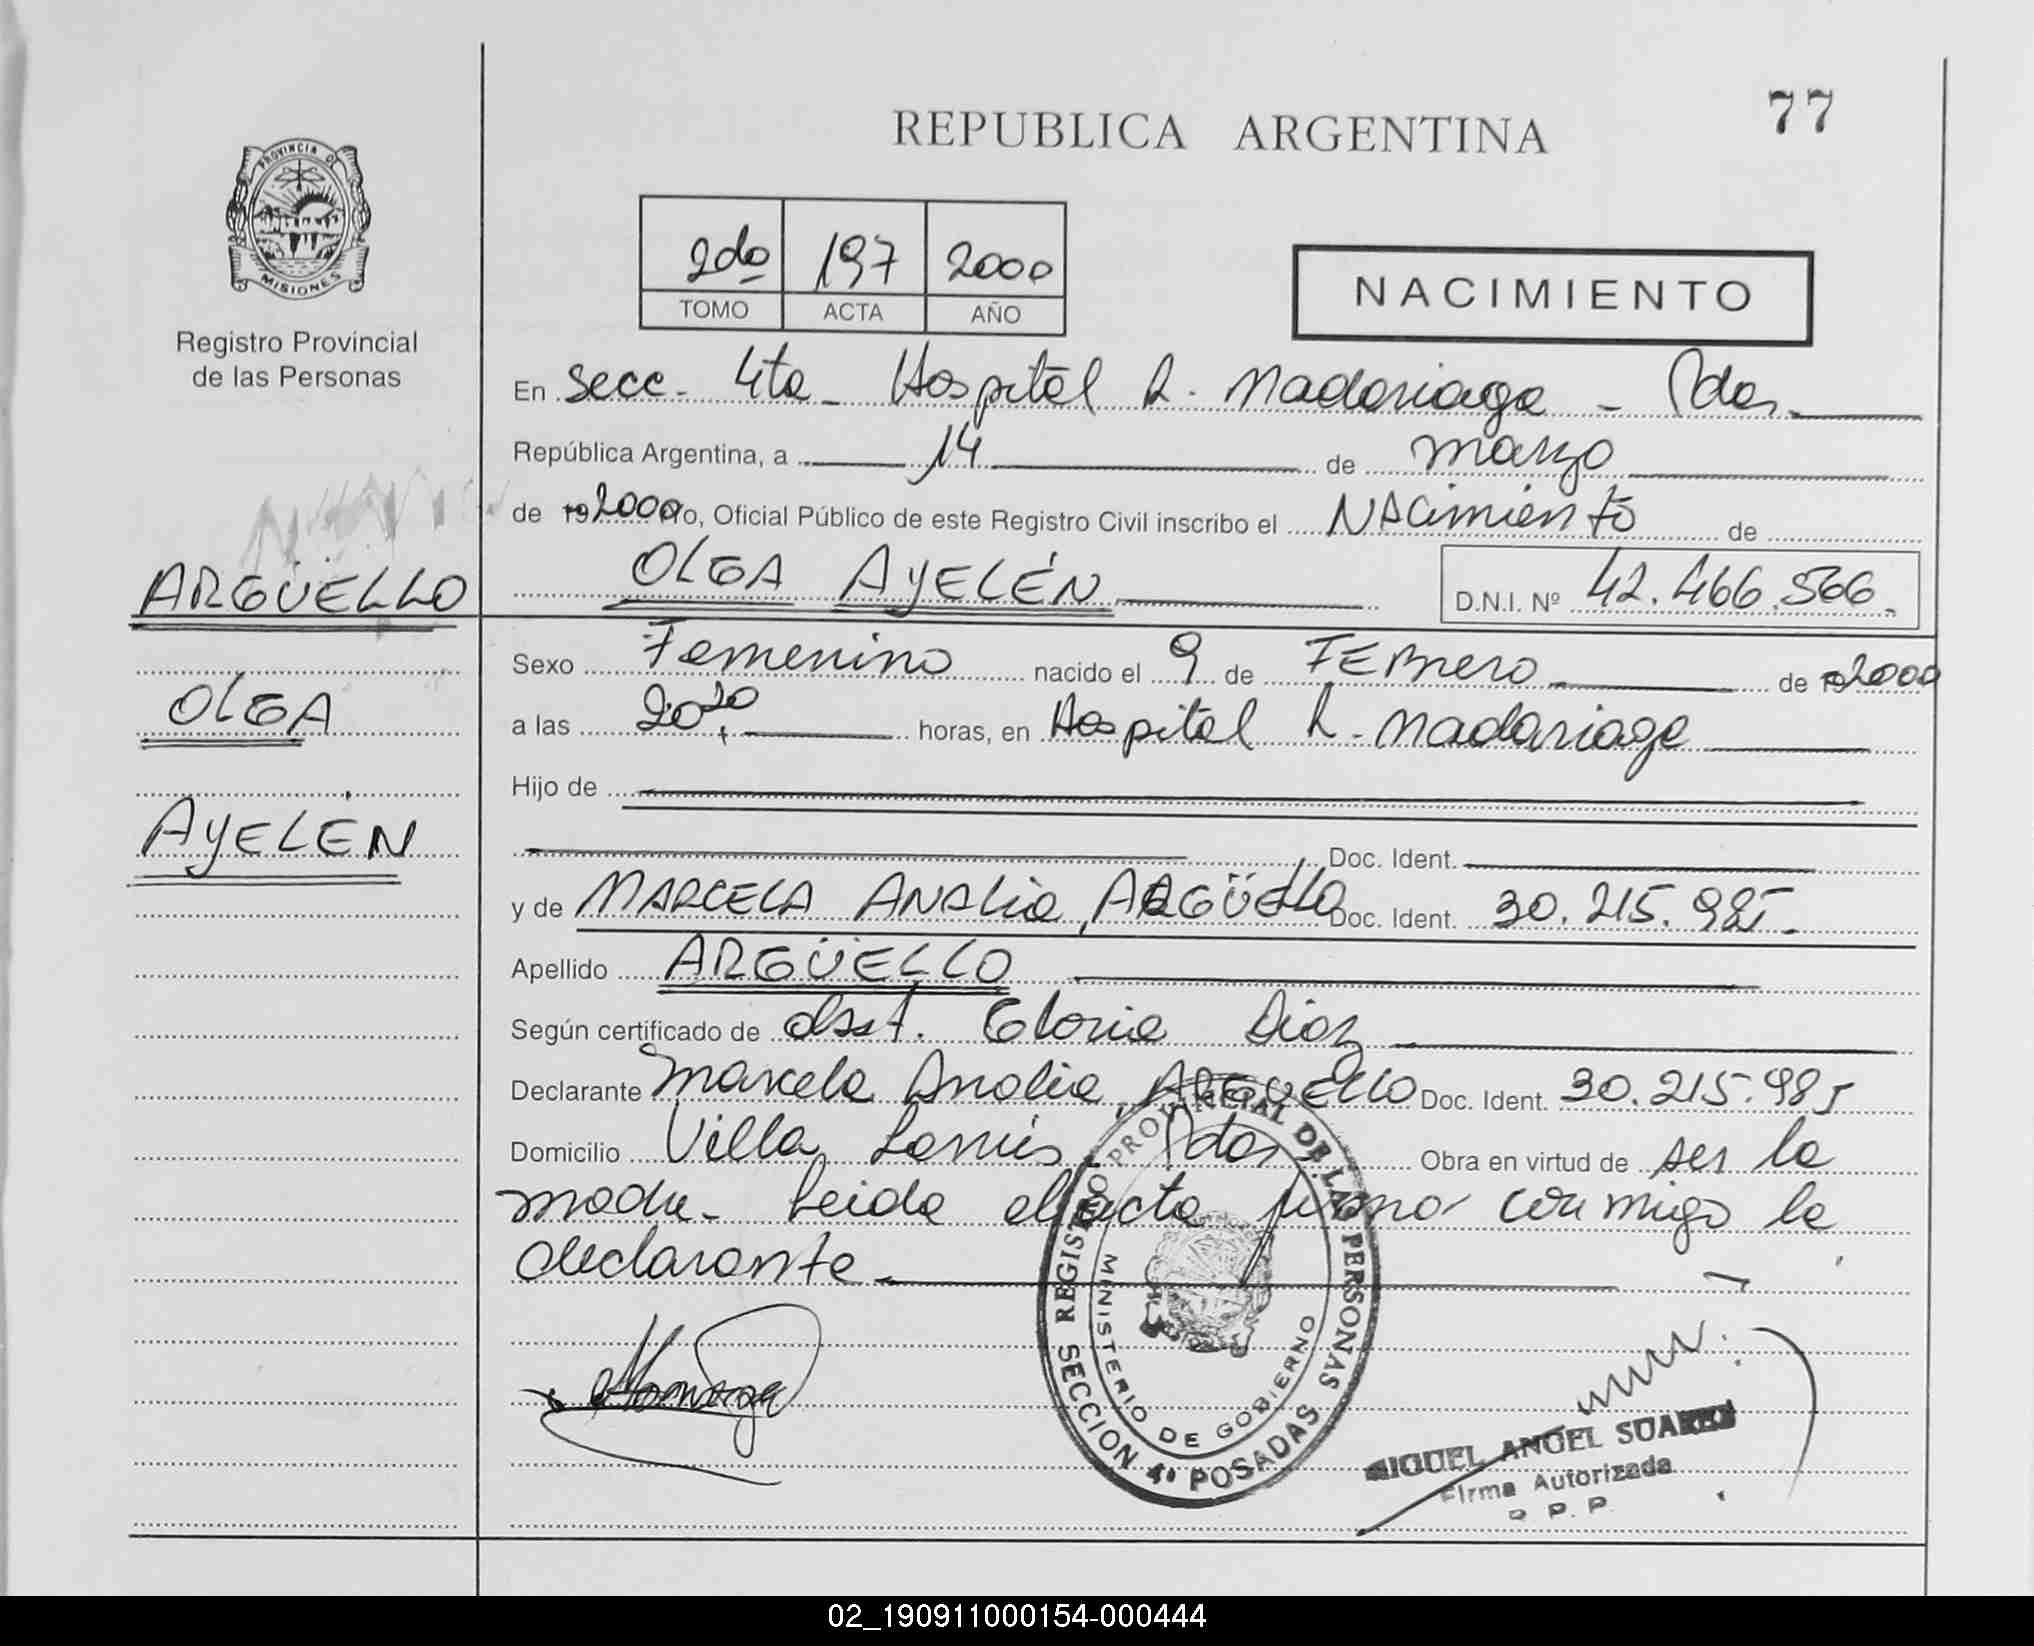 77
REPUBLICA ARGENTINA
PROVINCIA DE
MISIONES
Registro Provincial
de las Personas
2do 197 2000
TOMO ACTA AÑO
NACIMIENTO
En Secc. 4ta - Hospital R. Madariaga - Pdas.
República Argentina, a 14 de marzo
de 192000 Yo, Oficial Público de este Registro Civil inscribo el NACimiento de
OLGA AYELÉN D.N.I. Nº 42.466.566.
ARGÜELLO
OLGA
AYELÉN
Sexo Femenino nacido el 9 de FEBrero de 192000
a las 20,20 horas, en Hospital R. Madariaga
Hijo de
Doc. Ident.
y de MARCELA ANALia, ARGÜELLO Doc. Ident. 30.215.985.
Apellido ARGÜELLO
Según certificado de obst. Gloria Diaz
Declarante Marcela Analia, ARGÜELLO Doc. Ident. 30.215.985
Domicilio Villa Lanús - Pdas. Obra en virtud de ser la
madre. Leida el acta firma conmigo la
declarante
REGISTRO PROVINCIAL DE LAS PERSONAS
MINISTERIO DE GOBIERNO
SECCION 4ª POSADAS
MIGUEL ANGEL SUAREZ
Firma Autorizada
R. P. P.
02_190911000154-000444